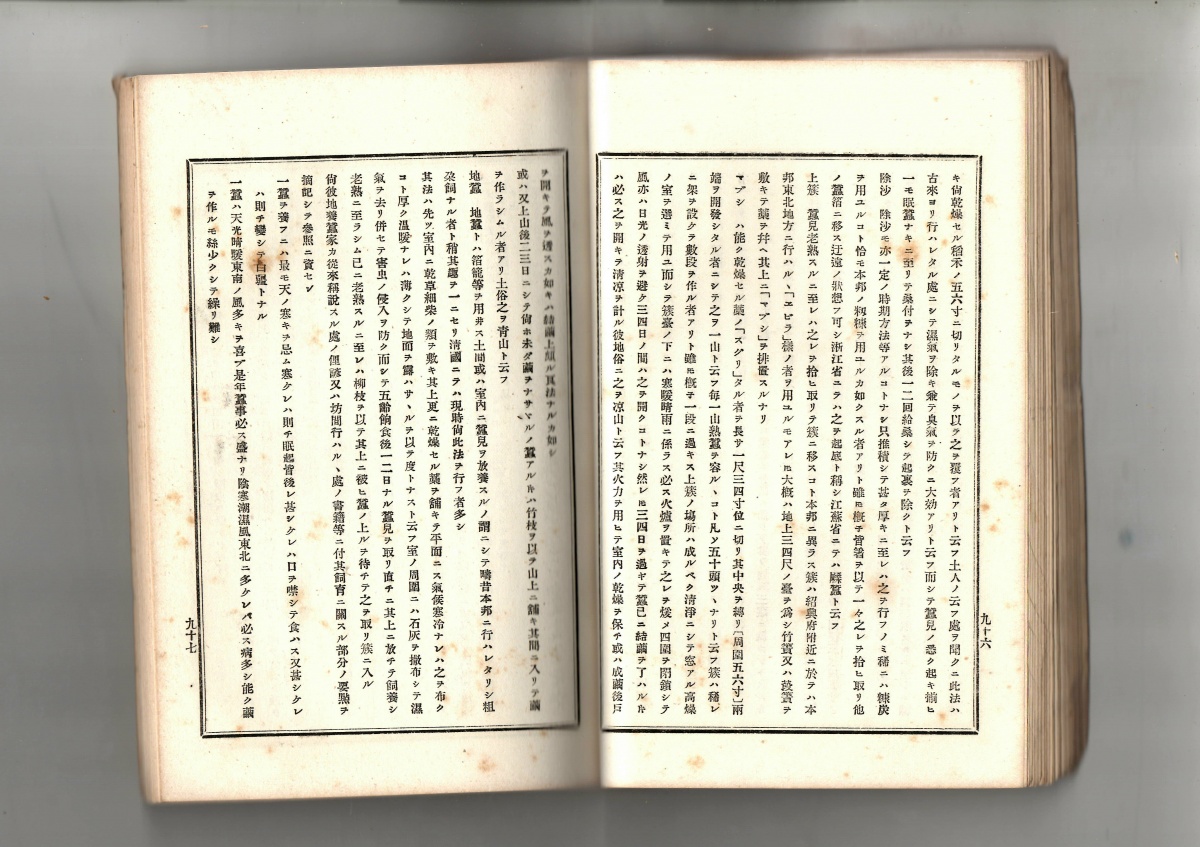 キ尙乾燥セル稻禾ノ五六寸ニ切リタルモノヲ以ラ之ヲ覆フ者アリト云フ土人ノ云フ處ヲ聞クニ此法ハ
古來ヨリ行ハレタル處ニシテ濕氣ヲ除キ兼テ臭氣ヲ防クニ大効アリト云フ而シテ蠶兒ノ悉ク起キ揃ヒ
一モ眠蠶ナキニ至リテ桑付ヲナシ其後一二回給桑シテ起裏ヲ除クト云フ
除沙　除沙モ亦一定ノ時期方法等アルコトナシ只推積シテ甚タ厚キニ至レハ之ヲ行フノミ稀ニハ糠炭
ヲ用ユルコト恰モ本邦ノ籾糠ヲ用ユルカ如クスル者アリト雖モ概子皆箸ヲ以テ一々之レヲ拾ヒ取リ他
ノ蠶箔ニ移ス迂遠ノ狀想フ可シ浙江省ニラハ之ヲ起底ト稱シ江蘇省ニテハ蠶ト云フ
上簇　蠶兒老熟スルニ至レハ之レヲ拾ヒ取リテ簇ニ移スコト本邦ニ異ラス簇ハ紹興府附近ニ於テハ本
邦東北地方ニ行ハル、「エビラ」樣ノ者ヲ用ユルモアレ𪜈大概ハ地上三四尺ノ臺ヲ爲シ竹簀又ハ葭簀ヲ
敷キテ藁ヲ幷ヘ其上ニ「マブシ」ヲ排置スルナリ
マブシ　ハ能ク乾燥セル藁ノ「スグリ」タル者ヲ長サ一尺三四寸位ニ切リ其中央ヲ縛リ〔周圍五六寸〕兩
端ヲ開發シタル者ニシテ之ヲ一山ト云フ每一山熟蠶ヲ容ル、コト凡ソ五十頭ツ、ナリト云フ簇ハ稀レ
ニ架ヲ設クラ數段ヲ作ル者アリト雖𪜈概子一段ニ過キス上簇ノ場所ハ成ルベク清淨ニシテ窓アル高燥
ノ室ヲ選ミテ用ユ而シテ簇臺ノ下ニハ寒暖晴雨ニ係ラス必ス火爐ヲ置キテ之レヲ煖メ四圍ヲ閉鎖シテ
風亦ハ日光ノ透射ヲ避ク三四日ノ間ハ之ヲ開クコトナシ然レ𪜈三四日ヲ過キテ蠶已ニ結繭ヲ了ハルキ
ハ必ス之ヲ開キテ清凉ヲ計ル彼地俗ニ之ヲ凉山ト云フ其火力ヲ用ヒテ室內ノ乾燥ヲ保チ或ハ成繭後戶
九十六
ヲ開キテ風ヲ透スカ如キハ結繭上頗ル良法ナルカ如シ
或ハ又上山後二三日ニシテ尙ホ未タ繭ヲナサヾルノ蠶アルキハ竹枝ヲ以テ山上ニ舖キ其間ニ入リテ繭
ヲ作ラシムル者アリ土俗之ヲ靑山ト云フ
地蠶　地蠶トハ箔籠等ヲ用井ス土間或ハ室內ニ蠶兒ヲ放養スルノ謂ニシテ疇昔本邦ニ行ハレタリシ粗
朶飼ナル者ト稍其趣ヲ一ニセリ淸國ニラハ現時尙此法ヲ行フ者多シ
其法ハ先ツ室內ニ乾草細柴ノ類ヲ敷キ其上更ニ乾燥セル藁ヲ舖キテ平面ニス氣候寒冷ナレハ之ヲ布ク
コト厚ク溫暖ナレハ薄クシテ地面ヲ露ハサ、ルヲ以テ度トナスト云フ室ノ周圍ニハ石灰ヲ撒布シテ濕
氣ヲ去リ併セテ害虫ノ侵入ヲ防ク而シテ五齡餉食後一二日ナル蠶兒ヲ取リ直チニ其上ニ放チテ飼養シ
老熟ニ至ラシム已ニ老熟スルニ至レハ柳枝ヲ以テ其上ニ被ヒ蠶ノ上ルヲ待テテ之ヲ取リ簇ニ入ル
尙彼地養蠶家カ從來稱說スル處ノ俚諺又ハ坊間行ハル、處ノ書籍等ニ付其飼育ニ關スル部分ノ要點ヲ
摘記シテ參照ニ資セシ
一蠶ヲ養フニハ最モ天ノ寒キヲ忌ム寒ケレハ則チ眠起皆後レ甚シケレハ口ヲ噤シテ食ハス又甚シケレ
ハ則チ變シテ白殭トナル
一蠶ハ天光晴暖東南ノ風多キヲ喜ブ是年蠶事必ス盛ナリ陰寒潮濕風東北ニ多ケレバ必ス病多シ能ク繭
ヲ作ルモ絲少クシテ繰リ難シ
九十七